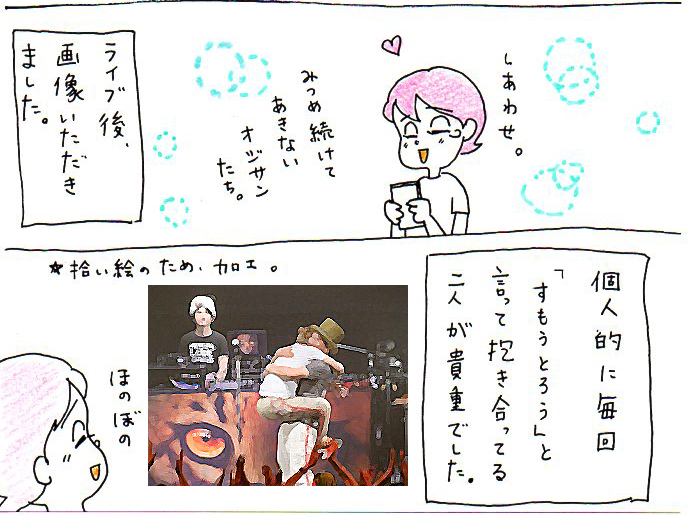 ライブ後、
画像いただき
ました。
しあわせ。
みつめ続けて
あきない
オジサン
たち。
*拾い絵のため、加工。
個人的に毎回
「すもうとろう」と
言って抱き合ってる
二人が貴重でした。
ほのぼの